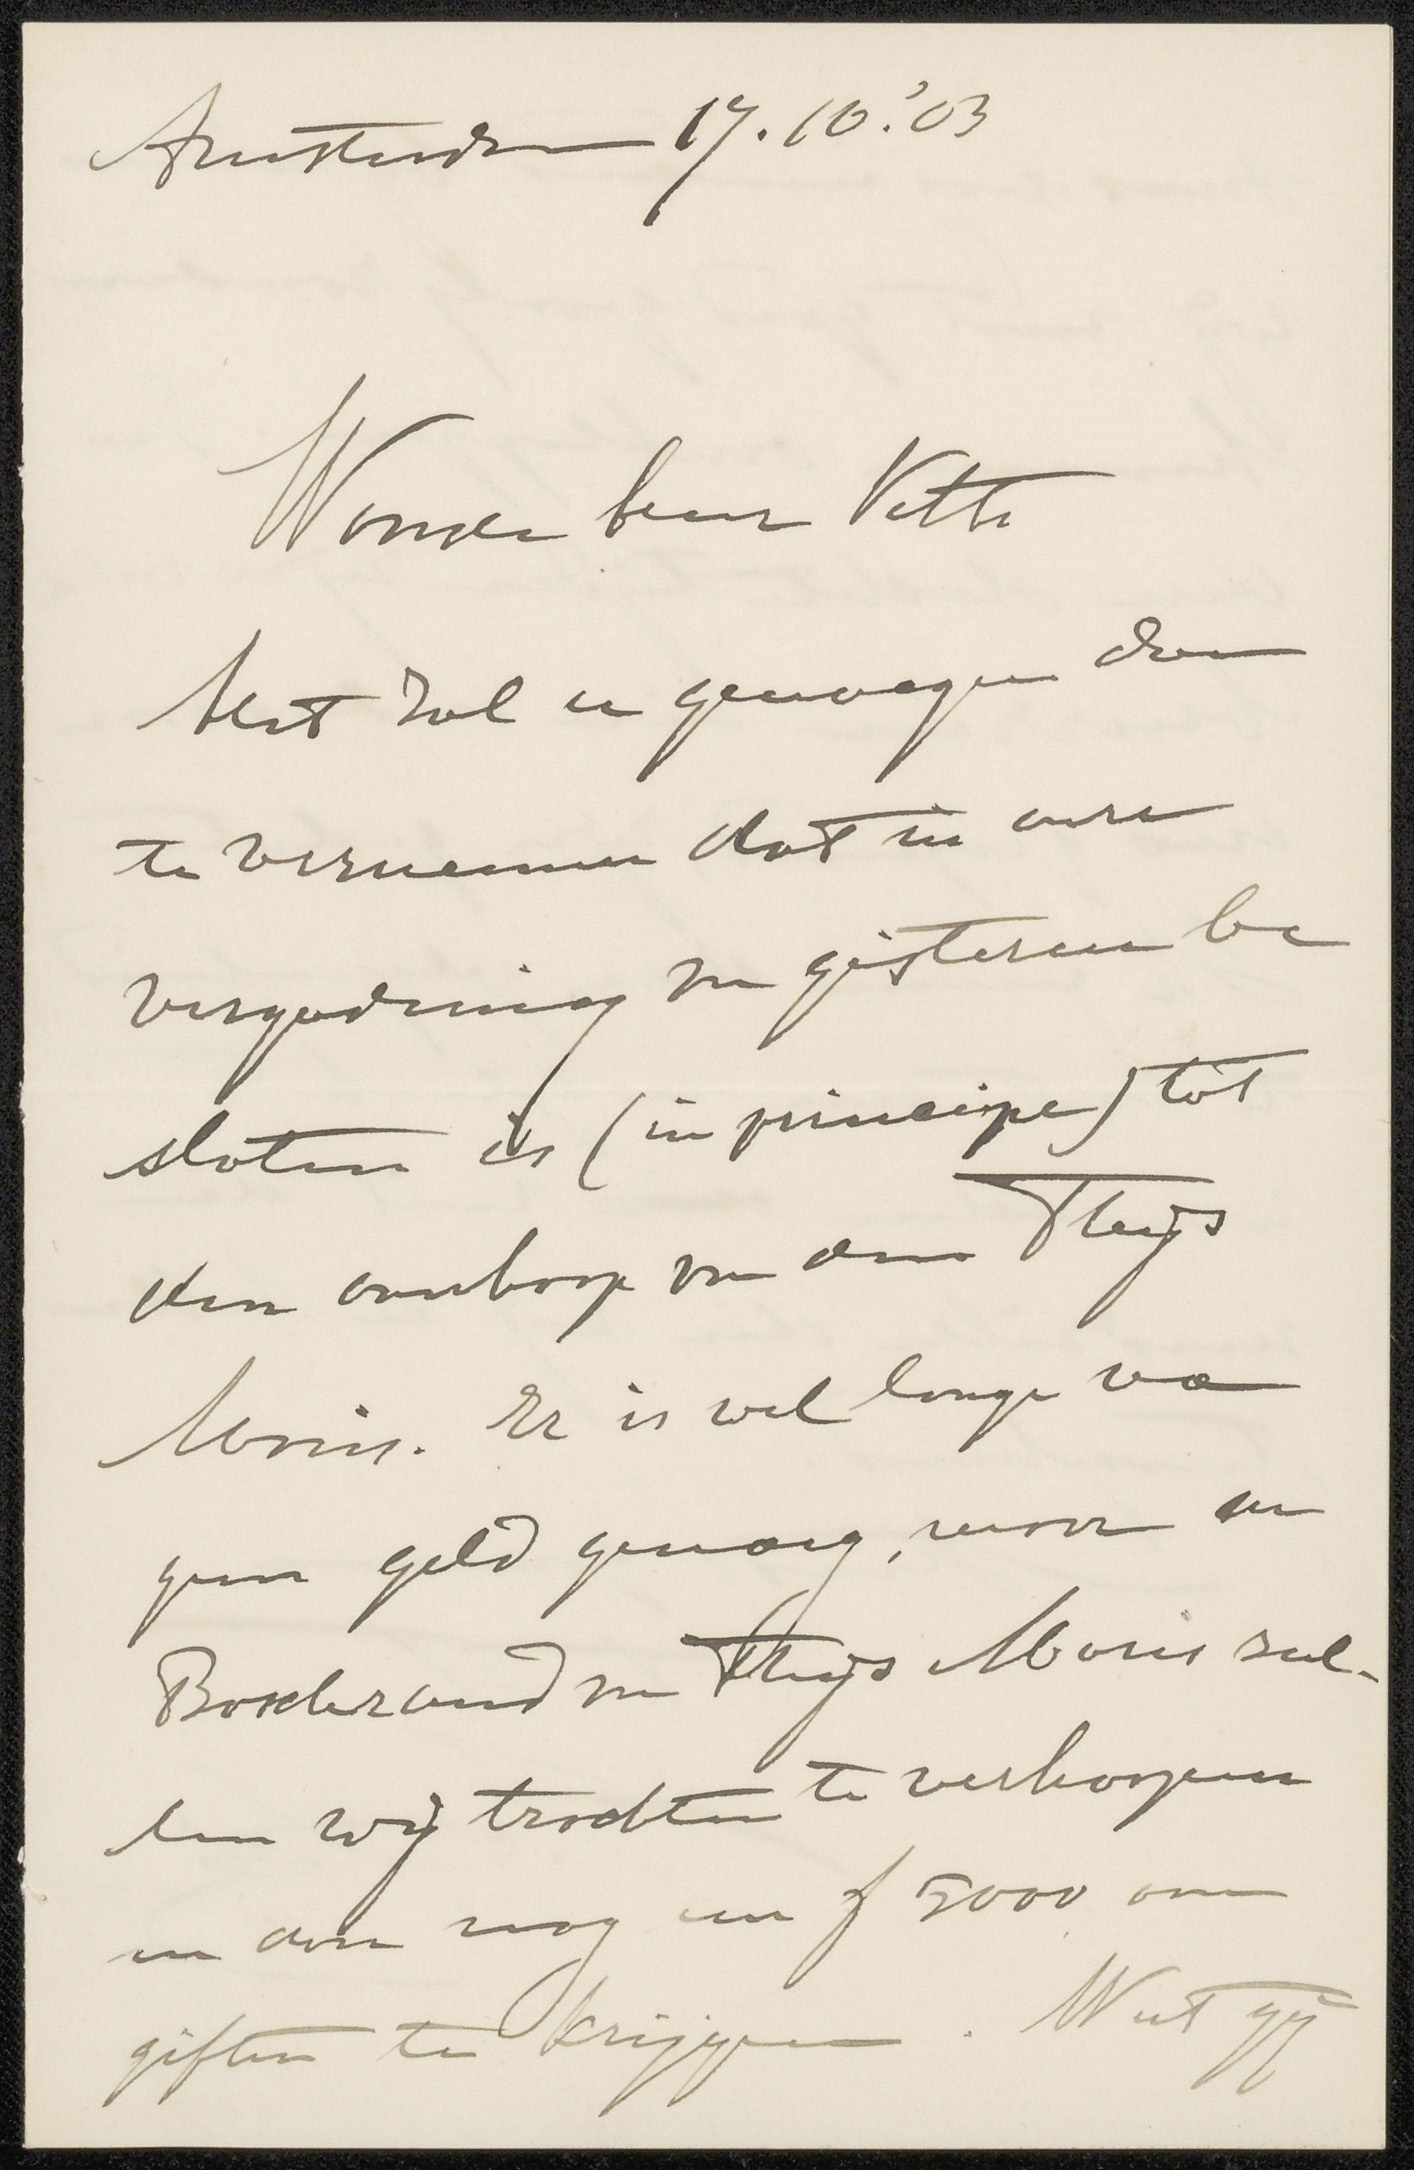 Amsterdam 17.10.'03
Waarde heer Veth
Het zal u genoegen doen
te vernemen dat in onze
vergadering van gisteren be
sloten is (in principe) tot
den aankoop van den Thijs
Maris. Er is wel lange na
geen geld genoeg, maar een
van Thijs Maris zul-
len wij trachten te verkoopen
en dan nog een f 5000 aan
giften te krijgen. Weet gij